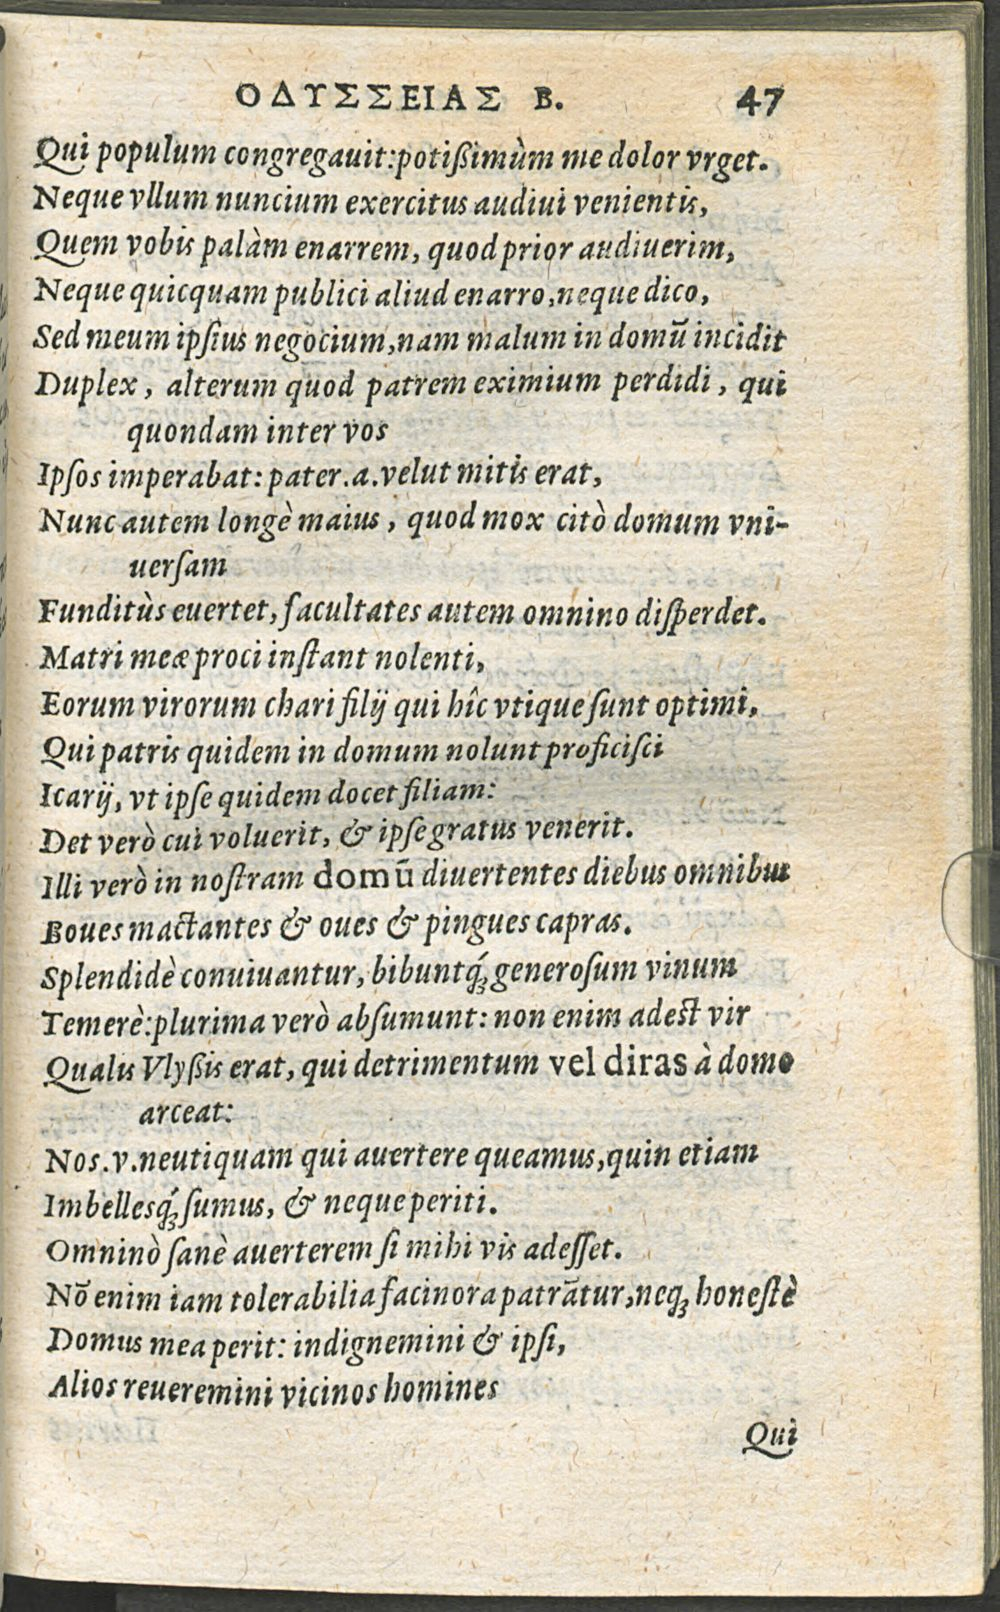 ΟΔΥΣΣΕΙΑΣ Β. 47
Qui populum congregauit:potißimùm me dolor vrget.
Neque vllum nuncium exercitus audiui venientis,
Quem vobis palàm enarrem, quod prior audiuerim,
Neque quicquam publici aliud enarro,neque dico,
Sed meum ipſius negocium,nam malum in domū incidit
Duplex, alterum quod patrem eximium perdidi, qui
quondam inter vos
Ipſos imperabat: pater.a.velut mitis erat,
Nunc autem longè maius, quod mox citò domum vni-
uerſam
Funditùs euertet, facultates autem omnino diſperdet.
Matri meæ proci inſtant nolenti,
Eorum virorum chari filij qui hîc vtique ſunt optimi,
Qui patris quidem in domum nolunt proficiſci
Icarij, vt ipſe quidem docet filiam:
Det verò cui voluerit, & ipſe gratus venerit.
Illi verò in noſtram domū diuertentes diebus omnibus
Boues mactantes & oues & pingues capras.
Splendidè conuiuantur, bibuntq́ꝫ generoſum vinum
Temerè:plurima verò abſumunt: non enim adeſt vir
Qualis Vlyßis erat, qui detrimentum vel diras à domo
arceat:
Nos.v.neutiquam qui auertere queamus,quin etiam
Imbellesq́ꝫ ſumus, & neque periti.
Omninò ſanè auerterem ſi mihi vis adeſſet.
Nō enim iam tolerabilia facinora patrātur,neqꝫ honeſtè
Domus mea perit: indignemini & ipſi,
Alios reueremini vicinos homines
Qui